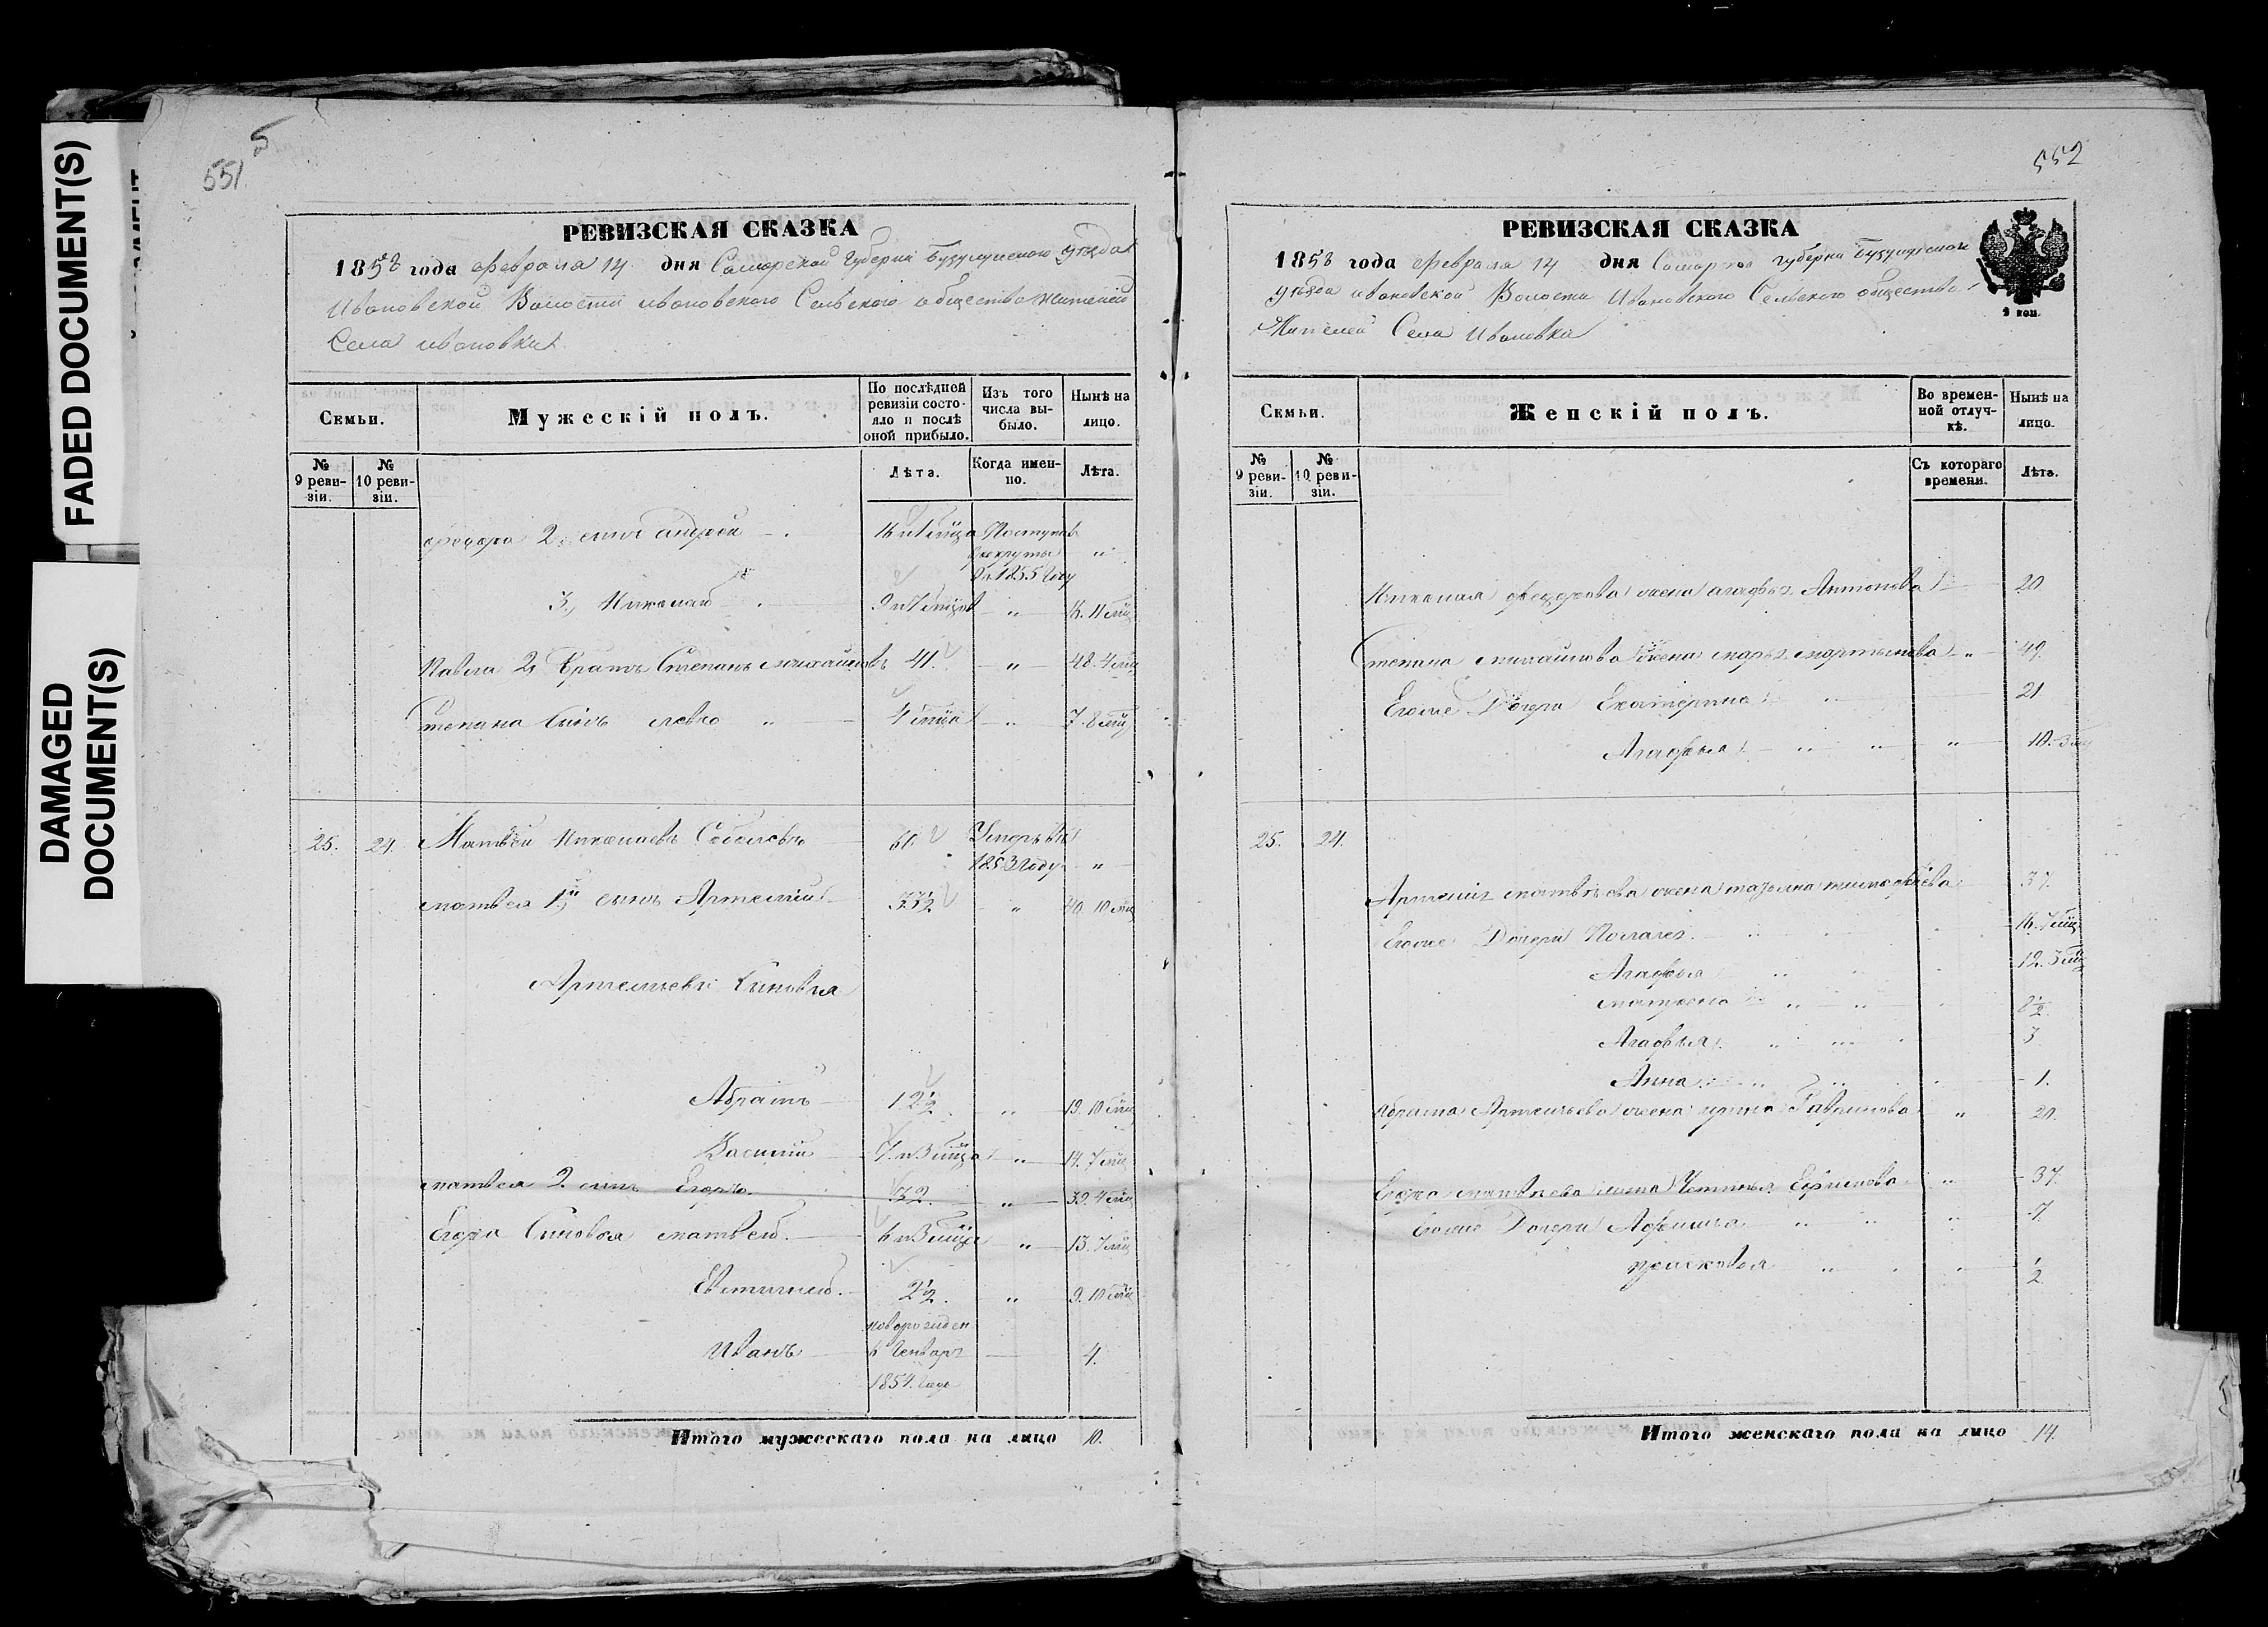 FADED DOCUMENT(S)
DAMAGED
DOCUMENT(S)
551
5
РЕВИЗСКАЯ СКАЗКА
1858 года февраля 14 дня Самарской Губерни Бузулуцкого уезда
Ивановской Волости ивановского Сельского общества жителей
Села ивановки
Семьи.
Мужескій полъ.
По послѣдней ревизіи состояло и послѣ оной прибыло.
Изъ того числа выбыло.
Нынѣ на лицо.
№ 9 ревизіи.
№ 10 ревизіи.
Лѣта.
Когда именно.
Лѣта.
федора 2. сынъ андрей
Поступ. в рекруты в 1855 году „
3, Николай 9 „
Павла 2й братъ Степанъ михайловъ 41. „ 48. 4
Степана сынъ „
25. 24. Матвѣй Николаевъ 61. Умеръ въ 1853 году „
матвея 1й сынъ Артемий 33½ „ 40 10
Артемьевы сыновья
Абрамъ 12½ „ 19. 10
Василий „ 14. 7
матвея 2 сынъ Егоръ 32 „ 39. 4
Егора сыновья матвей „ 13. 7
Евстигней. 2½. „ 9. 10
Иванъ новорожден 4.
1854. года
Итого мужескаго пола на лицо 10.
552
РЕВИЗСКАЯ СКАЗКА
2 коп.
1858 года февраля 14 дня губерни Бузулуцкой
уезда ивановской Волости Ивановского Сельского общества
Жителей Села Ивановка
Семьи.
Женскій полъ.
Во временной отлучкѣ.
Нынѣ на лицо.
№ 9 ревизіи.
№ 10 ревизіи.
Съ котораго времени.
Лѣта.
Николая федорова жена агафья Антонова 20
Степана михайлова жена марья мартынова „ 49.
Егоже Дочери Екатерина „ 21
Агафья „ „ „ 10. 3
25. 24.
Артемия матвеева жена татьяна тимофеева 37.
Егоже Дочери
Агафья „ 12. 3
матрена „ „
Агафья „ „ 3
Анна „ „ 1.
Абрама Артемьева жена ирина Гаврилова „ 20.
Егора матвеева жена Устинья Ефимова „ 37
Егоже Дочери Афимья „ „ „ 7.
прасковья „ ½
Итого женскаго пола на лицо 14.